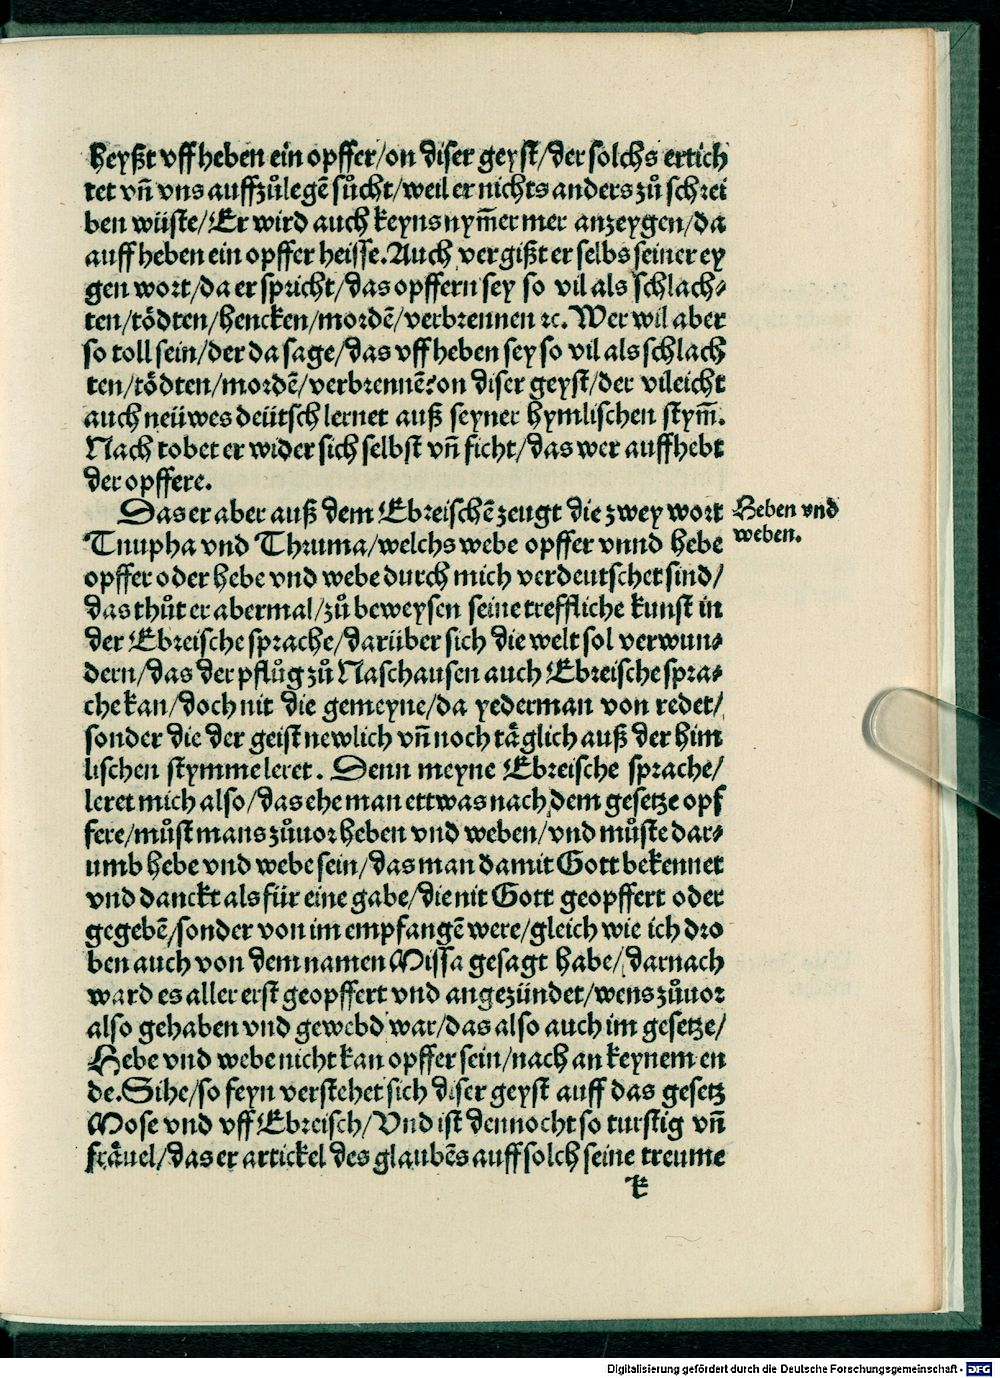 heyßt vff heben ein opffer/on diser geyst/der solchs ertich
tet vn̄ vns auffzůlegē sůcht/weil er nichts anders zů schrei
ben wüste/Er wird auch keyns nym̄er mer anzeygen/da
auff heben ein opffer heisse. Auch vergißt er selbs seiner ey
gen wort/da er spricht/das opffern sey so vil als schlach⸗
ten/tödten/hencken/mordē/verbrennen ꝛc. Wer wil aber
so toll sein/der da sage/das vff heben sey so vil als schlach
ten/tödten/mordē/verbrennē?on diser geyst/der vileicht
auch neüwes deütsch lernet auß seyner hymlischen stym̄.
Nach tobet er wider sich selbst vn̄ ficht/das wer auffhebt
der opffere.
Das er aber auß dem Ebreischē zeugt die zwey wort
Tnupha vnd Thruma/welchs webe opffer vnnd hebe
opffer oder hebe vnd webe durch mich verdeutschet sind/
das thůt er abermal/zů beweysen seine treffliche kunst in
der Ebreische sprache/darüber sich die welt sol verwun⸗
dern/das der pflůg zů Naschausen auch Ebreische spra⸗
che kan/doch nit die gemeyne/da yederman von redet/
sonder die der geist newlich vn̄ noch täglich auß der him
lischen stymme leret. Denn meyne Ebreische sprache/
leret mich also/das ehe man ettwas nach dem gesetze opf
fere/můst mans zůuor heben vnd weben/vnd můste dar⸗
umb hebe vnd webe sein/das man damit Gott bekennet
vnd danckt als für eine gabe/die nit Gott geopffert oder
gegebē/sonder von im empfangē were/gleich wie ich dro
ben auch von dem namen Missa gesagt habe/darnach
ward es aller erst geopffert vnd angezündet/wens zůuor
also gehaben vnd gewebd war/das also auch im gesetze/
Hebe vnd webe nicht kan opffer sein/nach an keynem en
de. Sihe/so feyn verstehet sich diser geyst auff das gesetz
Mose vnd vff Ebreisch/Vnd ist dennocht so turstig vn̄
fräuel/das er artickel des glaubēs auff solch seine treume
k
Heben vnd
weben.
Digitalisierung gefördert durch die Deutsche Forschungsgemeinschaft - DFG